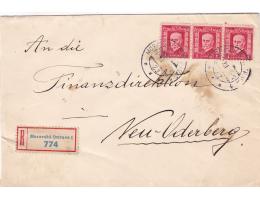 An die
Finanzdirektion
Neu-Oderberg
R
Moravská Ostrava 1
774